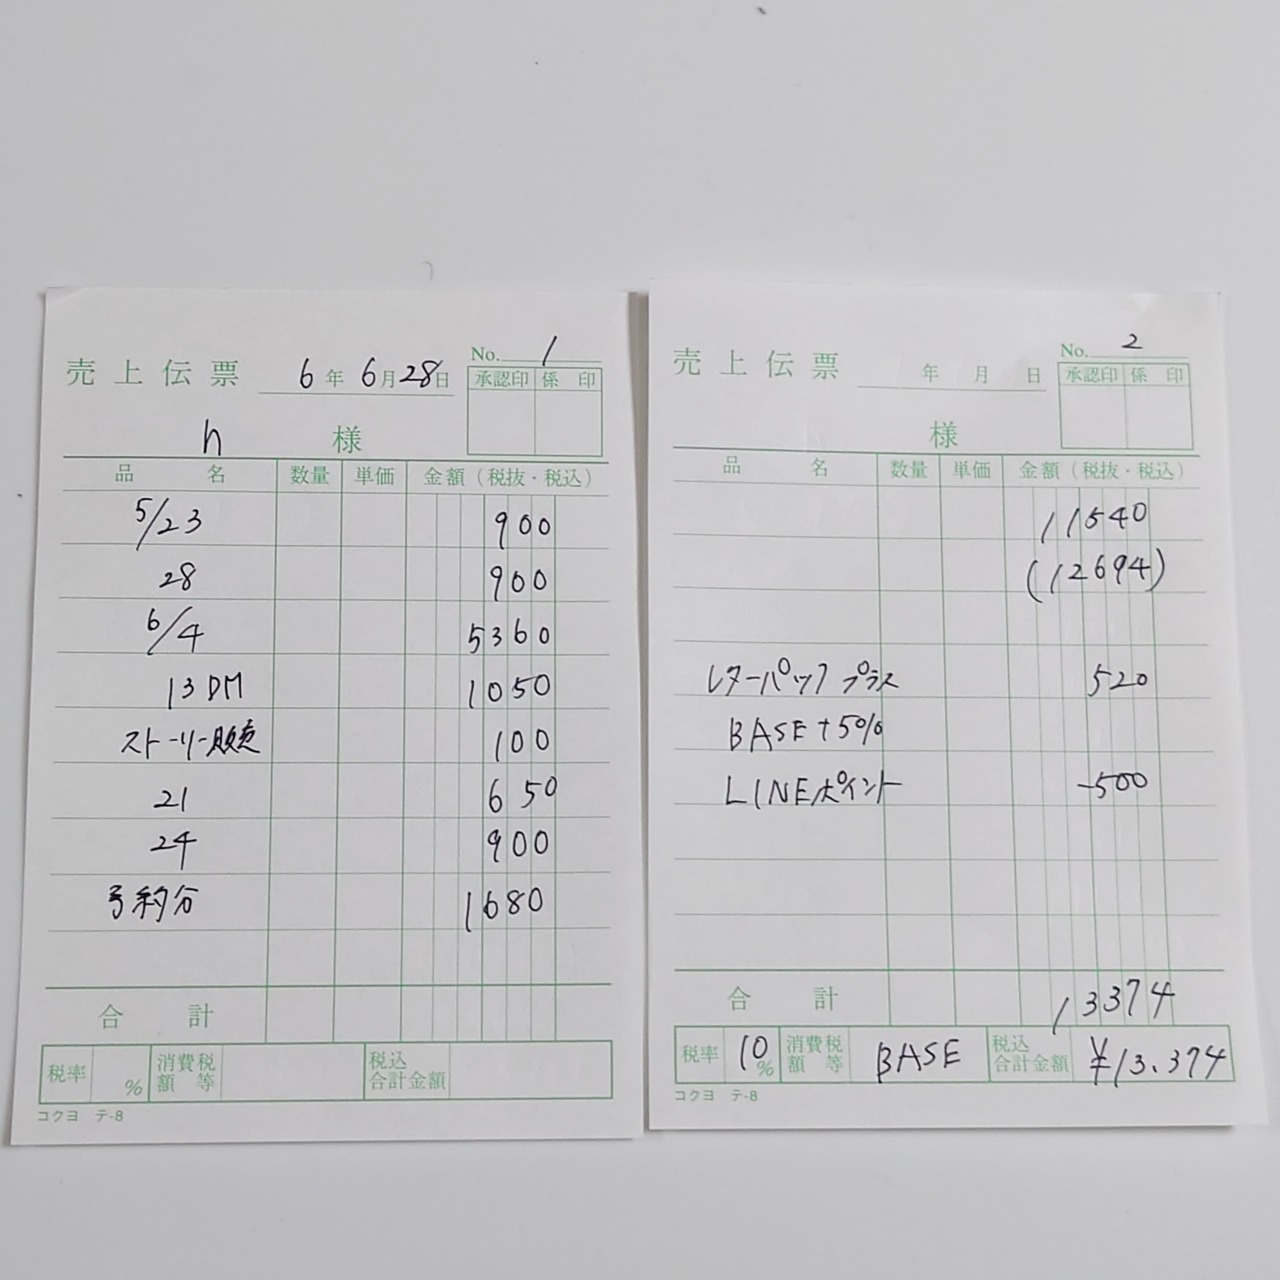 売上伝票 6年 6月 28日 No. 1
承認印 係 印
h 様
品 名 数量 単価 金額（税抜・税込）
5/23 900
28 900
6/4 5360
13 DM 1050
ストーリー販売 100
21 650
24 900
予約分 1680
合 計
税率 % 消費税額等 税込合計金額
コクヨ テ-8
売上伝票 年 月 日 No. 2
承認印 係 印
様
品 名 数量 単価 金額（税抜・税込）
11540
(12694)
レターパックプラス 520
BASE +5%
LINEポイント -500
合 計 13374
税率 10% 消費税額等 BASE 税込合計金額 ¥13.374
コクヨ テ-8